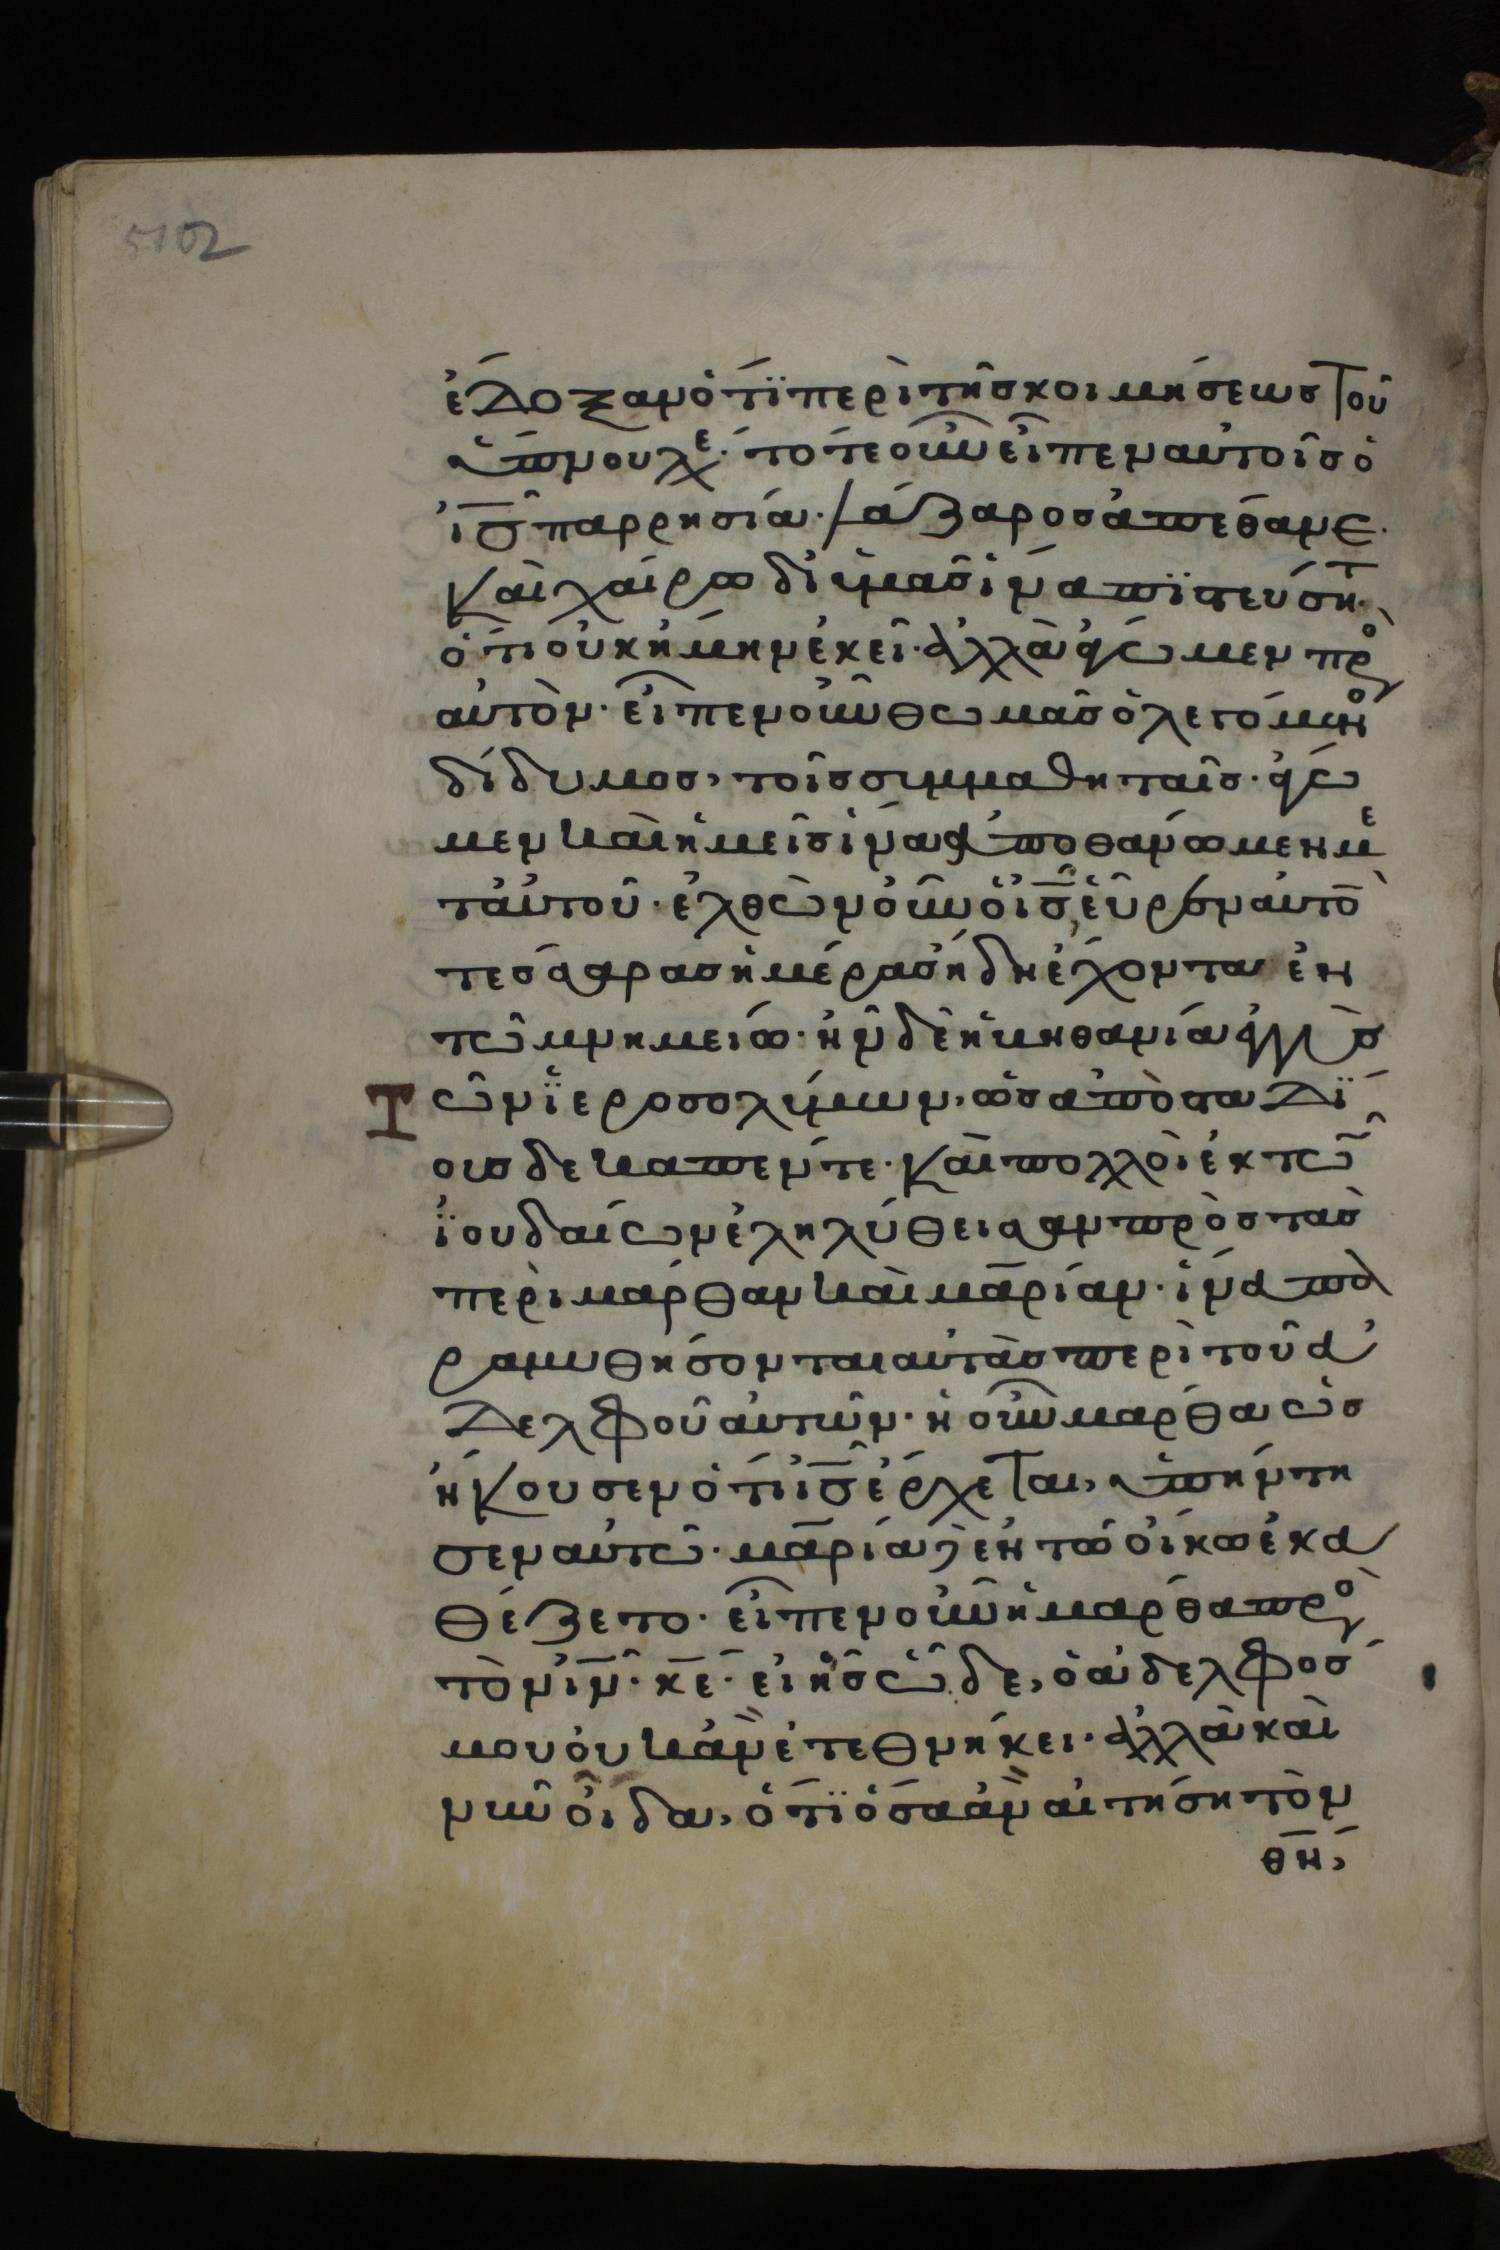 5102
ἔδοξαν ὅτϊ περὶ τῆς κοιμήσεως τοῦ
ὕπνου λέγε· τότε οὖν εἶπεν αὐτοῖς ὁ
ι̅σ̅ παρρησία· λάζαρος ἀπέθανε·
καὶ χαίρω δι ὑμᾶς ἵνα πϊστεύσητ·
ὅτι οὐκ ἤμην ἐκεῖ· ἀλλὰ ἄγωμεν πρὸ
αὐτὸν· εἶπεν οὖν θωμᾶς ὁ λεγόμενο
δίδυμος, τοῖς συμμαθηταῖς· ἄγω
μεν καὶ ἡμεῖς ἵνα ἀποθάνωμεν με
τ αὐτοῦ· ἐλθὼν οὖν ὁ ι̅σ̅, εὗρεν αὐτὸ
τέσσαρας ἡμέρας ἤδη ἔχοντα ἐν
τῶ μνημείω· ἦν δὲ ἡ βηθανία ἐγγὺς
τ ῶν ϊεροσολύμων, ὡς ἀπὸ σταδΐ
ων δεκαπέντε· καὶ πολλοὶ ἐκ τῶ
ϊουδαίων ἐληλύθεισαν πρὸς τὰς
περὶ μάρθαν καὶ μαρίαν· ἵνα πα
ραμυθήσονται αὐτὰς περὶ τοῦ ἀ
δελφοῦ αὐτῶν· ἡ οὖν μάρθα ὡς
ἤκουσεν ὅτι ι̅σ̅ ἔρχεται, ὑπήντη
σεν αὐτῶ· μαρία δὲ ἐν τῶ οἴκω ἐκα
θέζετο· εἶπεν οὖν ἡ μάρθα πρὸ
τὸν ι̅ν̅· κ̅ε̅· εἰ ἦς ὧδε, ὁ ἀδελφός
μου οὐκ ἂν ἐτεθνήκει· ἀλλὰ καὶ
νῦν οἶδα, ὅτϊ ὅσα ἂν αἰτήση τὸν
θ̅ν̅,